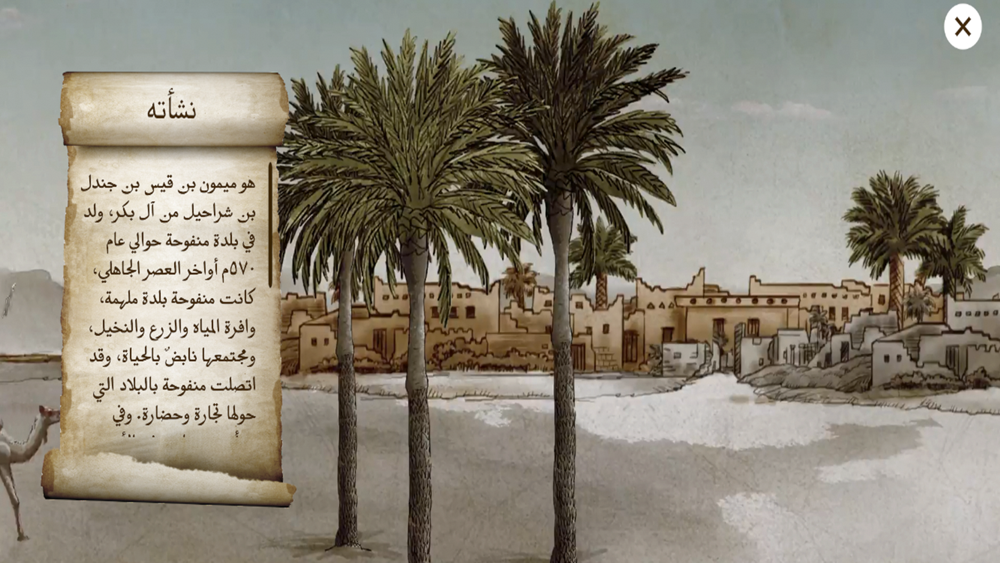 نشأته
هو ميمون بن قيس بن جندل
بن شراحيل من آل بكر، ولد
في بلدة منفوحة حوالي عام
٥٧٠م أواخر العصر الجاهلي،
كانت منفوحة بلدة ملهمة،
وافرة المياه والزرع والنخيل،
ومجتمعها نابضٌ بالحياة، وقد
اتصلت منفوحة بالبلاد التي
حولها تجارة وحضارة. وفي